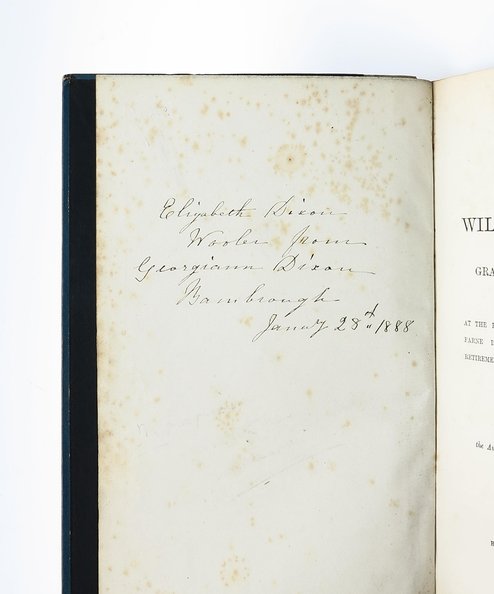 Elizabeth Dixon
Wooler from
Georgiann Dixon
Bambrough
Janay 28th 1888
WIL
GRA
AT THE
FARNE
RETIREME
the